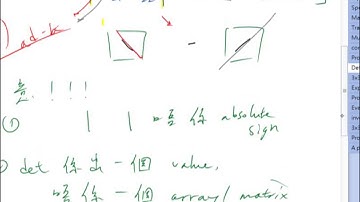 ad-b
!!!!
① | | 唔係 absolute
sign
det 係出一個 value,
唔係一個 array/matrix
Spe
Mat
Tra
Mu
con
Pro
Det
3x3
Exp
Pro
Eve
inv
3x3
Pro
A p